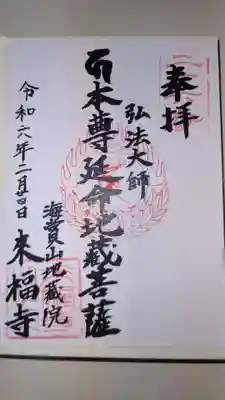 奉拝
弘法大師
本尊延命地蔵菩薩
海賞山地蔵院
來福寺
令和六年二月廿四日